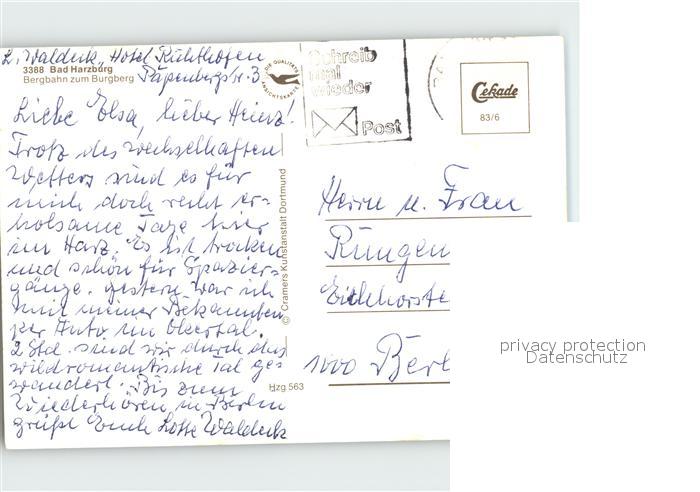 L. Waldeck, Hotel
3388 Bad Harzburg
Bergbahn zum Burgberg
Papenbergstr. 3
DIE QUALITÄTS ANSICHTSKARTE
Schreib
mal
wieder
Post
Cekade
83/6
Liebe Elsa, lieber Heinz!
Trotz des wechselhaften
Wetters sind es für
mich doch recht er-
holsame Tage hier
im Harz. Es ist trocken
und schön für Spazier-
gänge. Gestern war ich
mit meiner Bekannten
per Auto im Okertal.
2 Std. sind wir durch das
wildromantische Tal ge-
wandert. Bis zum
Wiederhören in Berlin
grüßt Euch Lotte Waldeck
© Cramers Kunstanstalt Dortmund
Hzg 563
Herrn u. Frau
Rüngen
Eichhorste
1000 Berl
privacy protection
Datenschutz